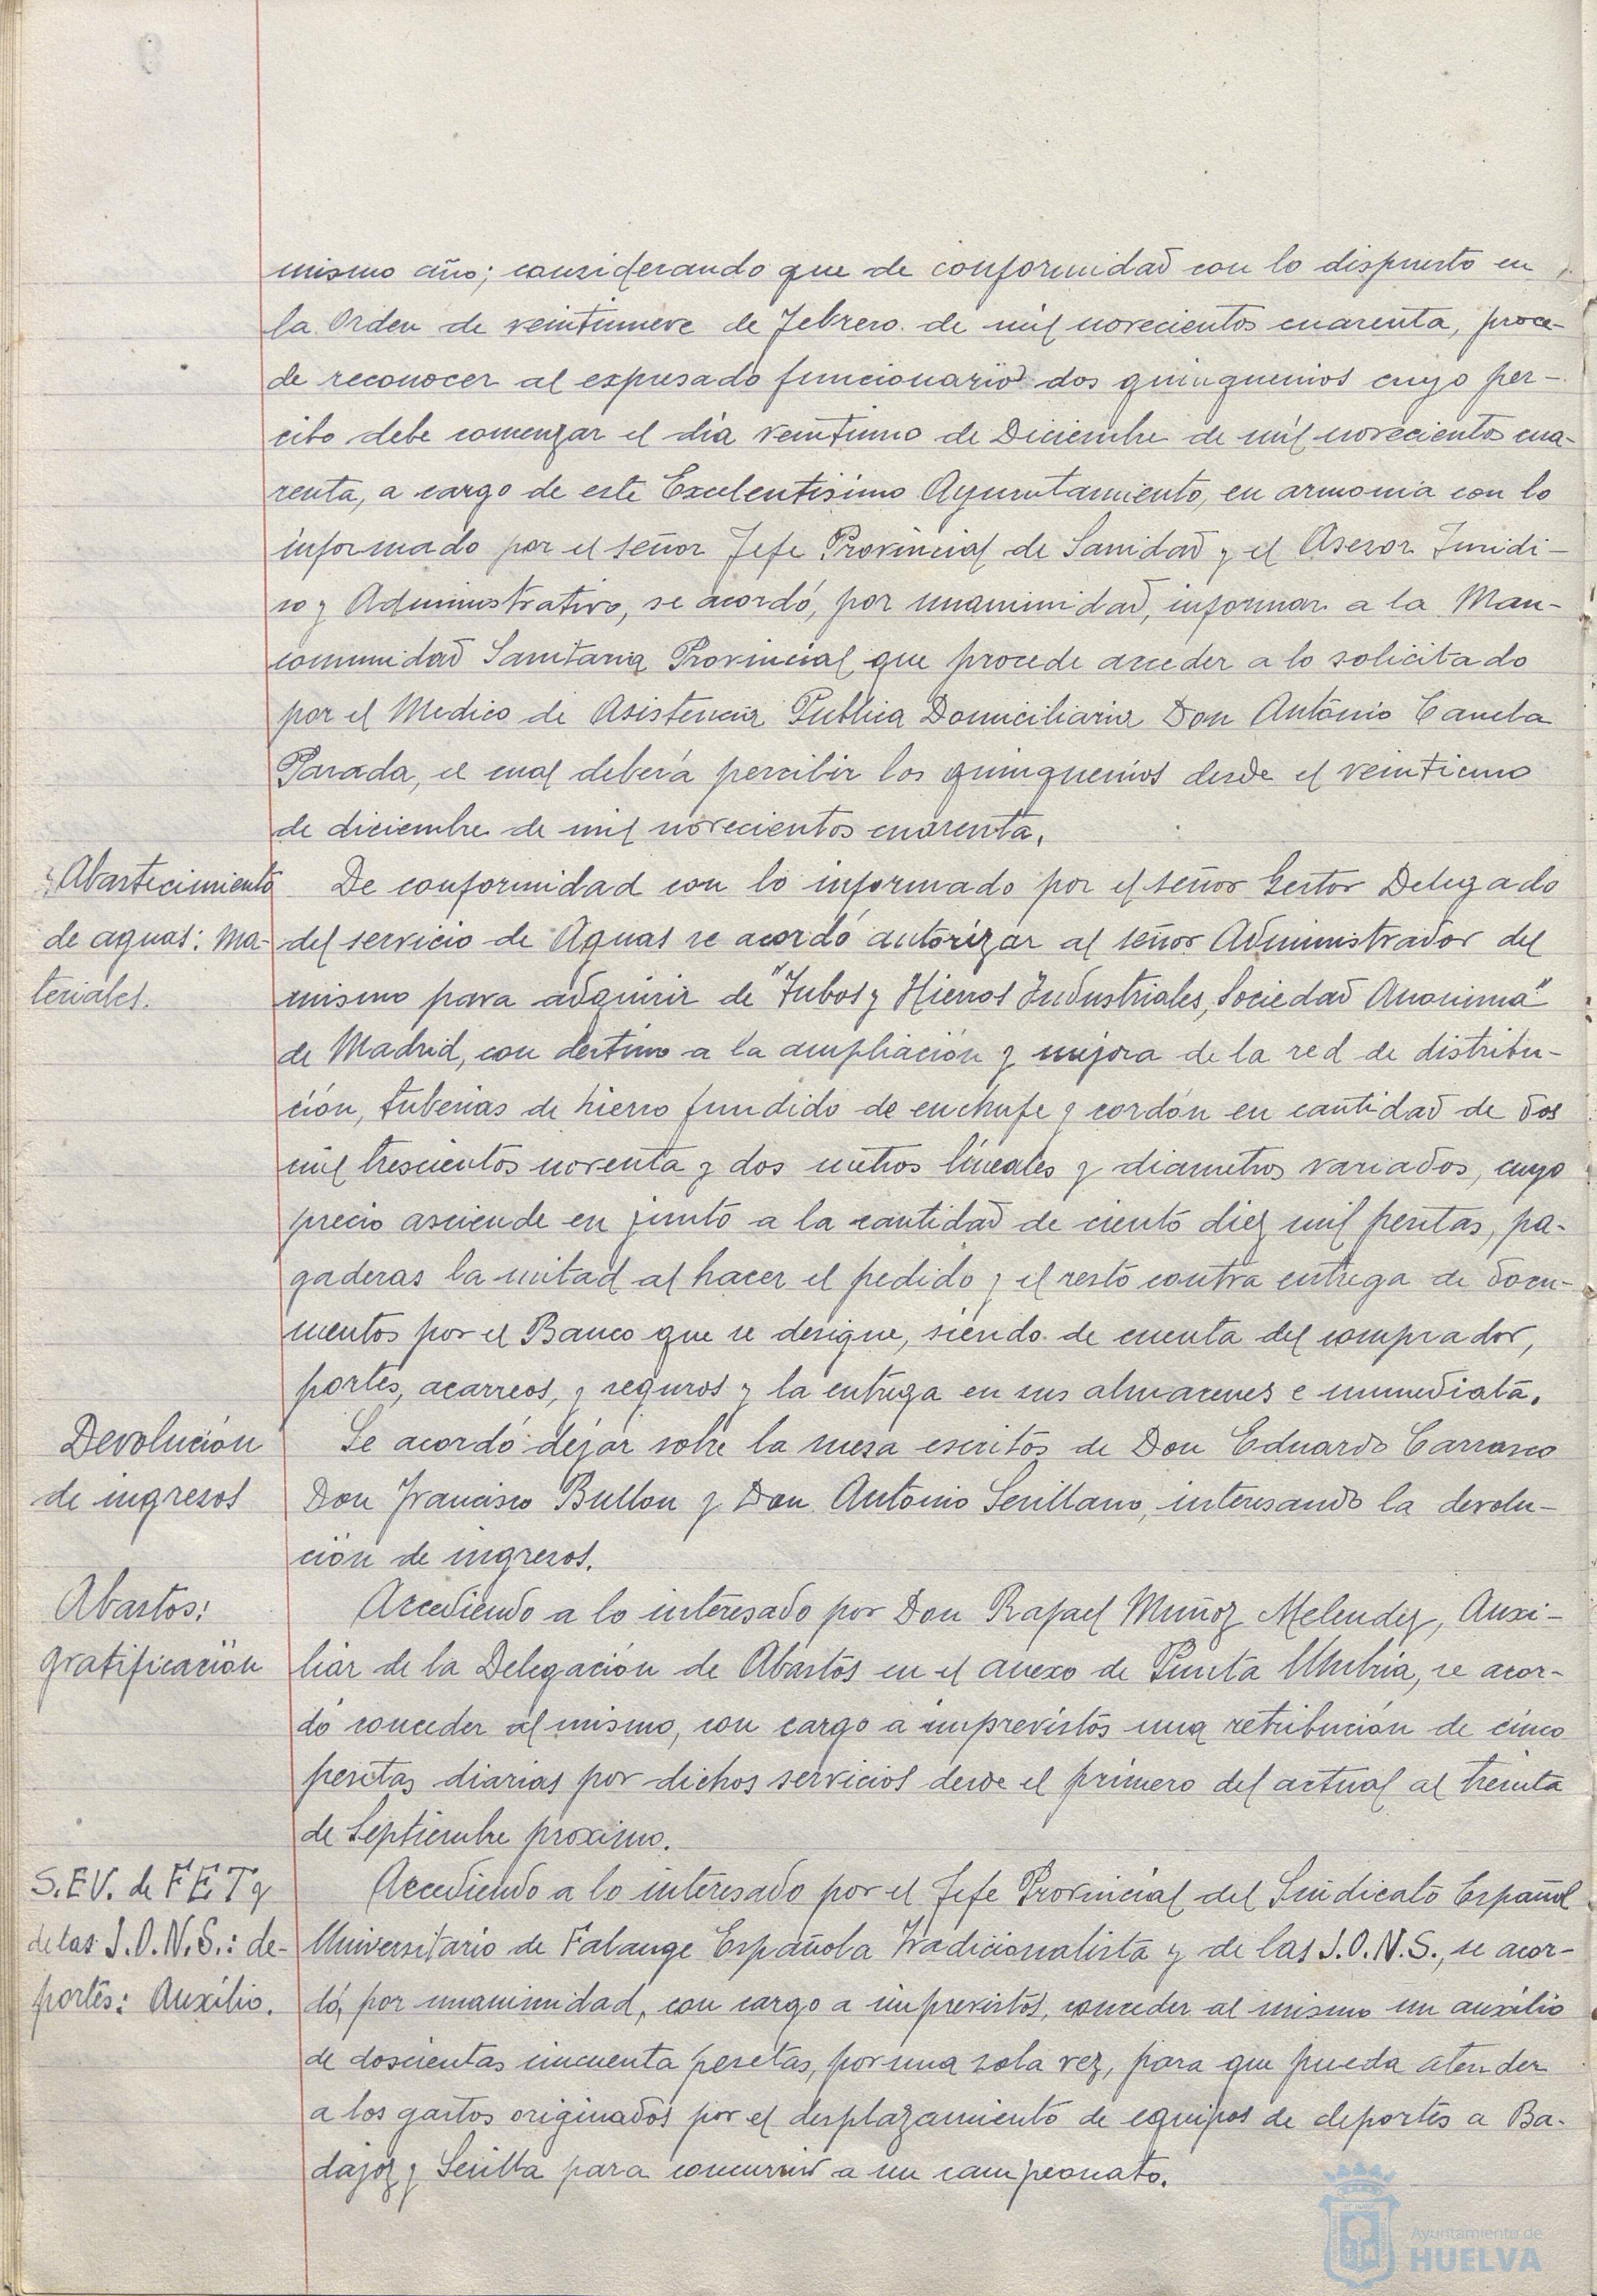 mismo año; considerando que de conformidad con lo dispuesto en
la Orden de veintinueve de Febrero de mil novecientos cuarenta, proce-
de reconocer al expresado funcionario dos quinquenios cuyo per-
cibo debe comenzar el dia veintiuno de Diciembre de mil novecientos cua-
renta, a cargo de este Excelentisimo Ayuntamiento, en armonia con lo
informado por el señor Jefe Provincial de Sanidad y el Asesor Juridi-
co y Administrativo, se acordó, por unanimidad, informar a la Man-
comunidad Sanitaria Provincial que procede acceder a lo solicitado
por el Medico de Asistencia Publica Domiciliaria Don António Canela
Parada, el cual deberá percibir los quinquenios desde el veintiuno
de diciembre de mil novecientos cuarenta.
Abastecimiento
de aguas: Ma-
teriales.
De conformidad con lo informado por el señor Gestor Delegado
del servicio de Aguas se acordó autorizar al señor Administrador del
mismo para adquirir de "Tubos y Hierros Industriales, Sociedad Anonima"
de Madrid, con destino a la ampliación y mejora de la red de distribu-
ción, tuberias de hierro fundido de enchufe y cordón en cantidad de dos
mil trescientos noventa y dos metros lineales y diametros variados, cuyo
precio asciende en junto a la cantidad de ciento diez mil pesetas, pa-
gaderas la mitad al hacer el pedido y el resto contra entrega de docu-
mentos por el Banco que se designe, siendo de cuenta del comprador,
portes, acarreos, y seguros y la entrega en sus almacenes e inmediata.
Devolución
de ingresos
Se acordó dejar sobre la mesa escritos de Don Eduardo Carrasco
Don Francisco Bullon y Don António Sevillano, interesando la devolu-
ción de ingresos.
Abastos:
gratificación
Accediendo a lo interesado por Don Rafael Muñoz Melendez, Auxi-
liar de la Delegación de Abastos en el anexo de Punta Umbria, se acor-
dó conceder al mismo, con cargo a imprevistos una retribución de cinco
pesetas diarias por dichos servicios desde el primero del actual al treinta
de Septiembre proximo.
S.E.U. de F E T y
de las J.O.N.S.: de-
portes: Auxilio.
Accediendo a lo interesado por el Jefe Provincial del Sindicato Español
Universitario de Falange Española Tradicionalista y de las J.O.N.S., se acor-
dó, por unanimidad, con cargo a imprevistos, conceder al mismo un auxilio
de doscientas cincuenta pesetas, por una sola vez, para que pueda atender
a los gastos originados por el desplazamiento de equipos de deportes a Ba-
dajoz y Sevilla para concurrir a un campeonato.
Ayuntamiento de
HUELVA